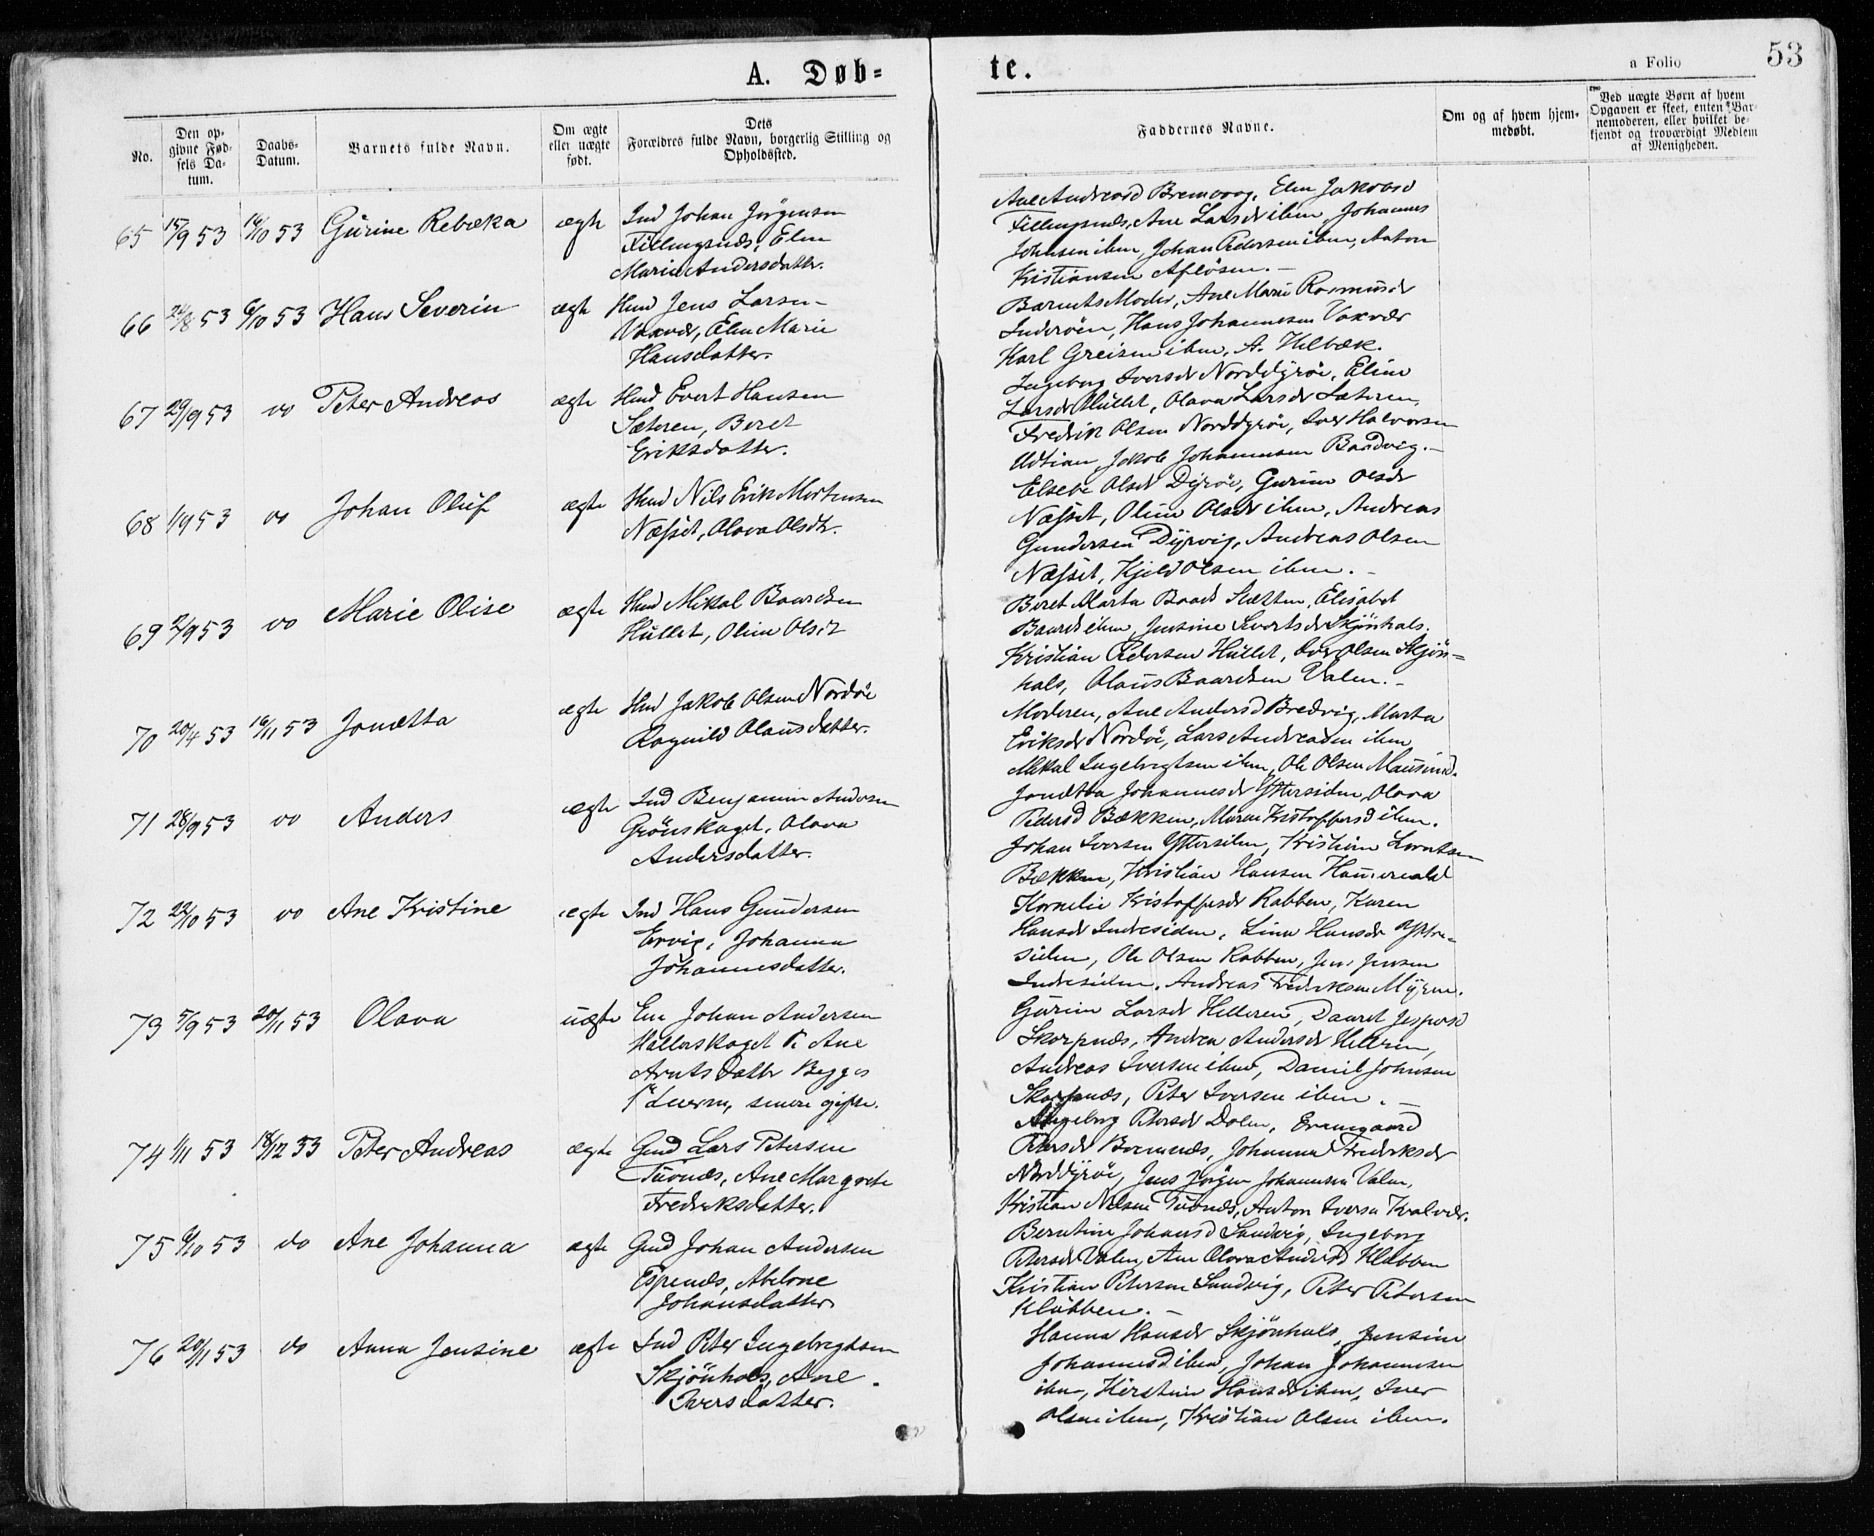 A. Døb-
te.
a Folio
53
No.
Den op-
givne Fød-
sels Da-
tum.
Daabs-
Datum.
Barnets fulde Navn.
Om ægte
eller uægte
født.
Dets
Forældres fulde Navn, borgerlig Stilling og
Opholdssted.
Faddernes Navne.
Om og af hvem hjem-
medøbt.
Ved uægte Børn af hvem
Opgaven er skeet, enten Bar-
nemoderen, eller hvilket be-
kjendt og troværdigt Medlem
af Menigheden.
65 15/9 53 16/10 53 Gurine Rebæka ægte Ind Johan Jörgensen
Fillingsnæs, Elen
Marie Andersdatter.
Ane Andreasd Bremvaag, Elen Jakobsd
Fillingsnæs, Ane Larsdr ibm, Johannes
Johnsen ibm, Johan Pedersen ibm, Anton
Kristiansen Aflösen. –
66 53 6/10 53 Hans Severin ægte Hmd Jens Larsen
Vaxvær, Elen Marie
Hansdatter.
Barnets Moder, Ane Marie Rasmusdr
Inderöen, Hans Johannesen Vaxvær
Karl Greisen ibm, A. Helbæk.
67 29/9 53 do Peter Andreas ægte Hmd Evert Hansen
Sæteren, Beret
Eriksdatter.
Ingeborg Iversdr Norddyröi, Eline
Larsdr Hullet, Olava Larsdr Sæteren,
Fredrik Olsen Norddyröi, Iver Halvorsen
Ustian, Jakob Johannesen Baadvig. –
68 1/9 53 do Johan Oluf ægte Hmd Nils Erik Mortensen
Næsset, Olava Olsdtr.
Elsebe Olsdr Dyröi, Gurine Olsdr
Næsset, Oline Olsdr ibm, Andreas
Gundersen Dyrvig, Andreas Olsen
Næsset, Kjeld Olsen ibm. –
69 2/9 53 do Marie Olise ægte Hmd Mikal Baardsen
Hullet, Oline Olsdr
Beret Marta Baards Sletten, Elisabet
Baardsd ibm, Jensine Sivertsdr Skjönhals.
Kristian Pedersen Hullet, Iver Olsen Skjön=
hals, Olaus Baardsen Valen. –
70 20/4 53 16/11 53 Jonetta ægte Hmd Jakob Olsen Nordöi
Ragnild Olausdatter.
Moderen, Ane Andersd Bredvig, Marta
Eriksdr Nordöi, Lars Andreasen ibm
Mikal Ingebrigtsen ibm, Ole Olsen Mausund.
71 28/9 53 do Anders ægte Ind Benjamin Andersen
Grönskaget, Olava
Andersdatter.
Jonetta Johannesdr Yttersiden, Olava
Pedersd Bækken, Maren Kristoffersd ibm.
Johan Iversen Yttersiden, Kristian Lorntsen
Bækken, Kristian Hansen
72 22/10 53 do Ane Kristine ægte Ind Hans Gundersen
Ervig, Johanna
Johannesdatter.
Kornelie Kristoffersdr Rabben, Karen
Hansdr Indresiden, Lina Hansdr Yttre-
siden, Ole Olsen Rabben, Jens Jensen
Indresiden, Andreas Fredriksen Myren.
73 5/9 53 20/11 53 Olava uægte Em Johan Andersen
Hallarskaget P. Ane
Arntsdatter Begges
1ste Leierm, senere gifte.
Gurine Larsdr Helleren, Daaret Jespersd
Skarpnæs, Andrea Andersdr Helleren,
Andreas Iversen ibm, Daniel Johnsen
Skarpnæs, Peter Iversen ibm. –
74 1/11 53 18/12 53 Peter Andreas ægte Gmd Lars Petersen
Tuvnæs, Ane Margrete
Fredriksdatter.
Ingeborg Petersdr Dolm, Ermegaard
Petersdr Bremnæs, Johanna Fredriksdr
Norddyröi, Jens Jörgen Johannesen Valen,
Kristian Nilsen Tuvnæs, Anton Iversen Kvalvær.
75 6/10 53 do Ane Johanna ægte Gmd Johan Andersen
Espenæs, Abelone
Johansdatter.
Berntine Johansd Sandvig, Ingeborg
Petersdr Valen, Ane Olava Andersd Klubben
Kristian Petersen Sandvig, Peter Petersen
Klubben. –
76 20/11 53 do Anna Jensine ægte Ind Peter Ingebrigtsen
Skjönhals, Ane
Iversdatter.
Hanna Hansdr Skjönhals, Jensine
Johannesd ibm, Johan Johannesen
ibm, Kirstine Hansdr ibm, Iver
Olsen ibm, Kristian Olsen ibm.